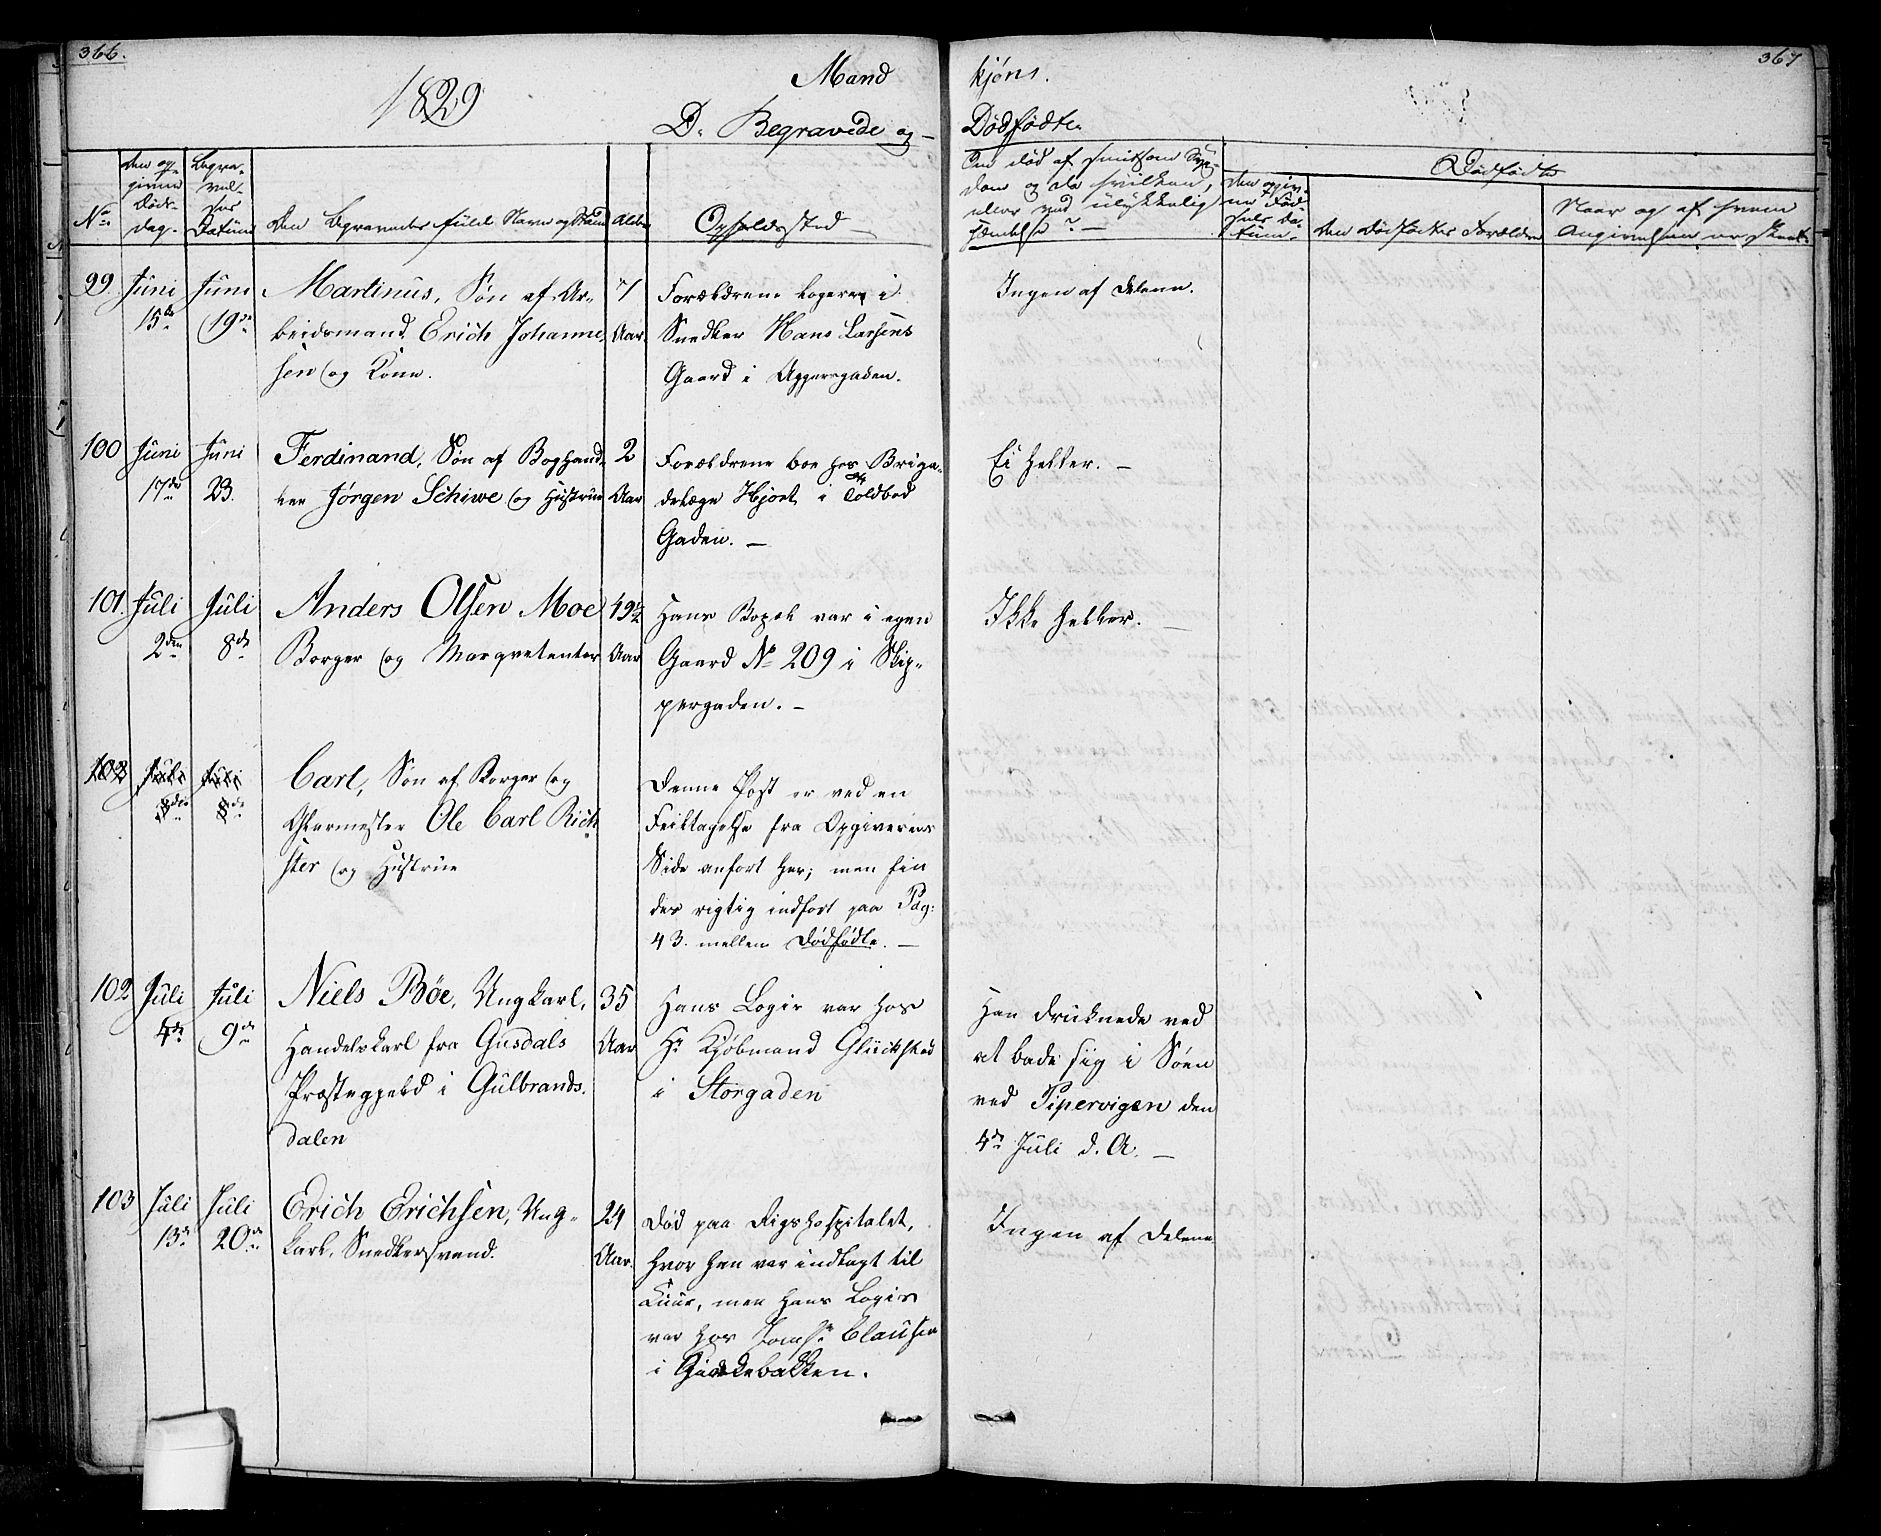 366.
367
1829
Mand
kjöns.
D. Begravede og
Dødfødte.
No
Den opgivne Døds-dag.
Begravelses Datum
Den Begravedes fulde Navn og Stand
Alder
Opholdssted
Om død af smitsom Sygdom og da hvilken, eller ved ulykkelig Hændelse?
Dødfødte
Den opgivne Fødsels Datum
Den Dødfødtes Forældre
Naar og af hvem Angivelsen er skeet.
99. Juni 15de Juni 19de
Martinus, Søn af Ar-
beidsmand Erich Johanne-
sen og Kone.
7 Aar
Forældrene logere i
Snedker Hans Larsens
Gaard i Aggersgaden.
Ingen af Delene.
100 Juni 17de Juni 23.
Ferdinand, Søn af Boghand-
ler Jørgen Schiwe og Hustrue
2 Aar
Forældrene boe hos Briga-
delæge Hjort i Toldbod
Gaden. —
Ei heller. —
101. Juli 2den Juli 8de
Anders Olsen Moe
Borger og Marqvetenter
49½ Aar
Hans Bopæl var i egen
Gaard No 209 i Skip-
pergaden. —
Ikke heller. —
102 Juli 8de
Carl, Søn af Borger og
Glarmester Ole Carl Rich-
ster og Hustrue
Denne Post er ved en
Feiltagelse fra Opgiverens
Side anført her; men fin
des rigtig indført paa Pag:
43. mellem Dødfødte. —
102 Juli 4de Juli 9de
Niels Bøe, Ungkarl,
Handelskarl fra Gusdals
Præstegjeld i Gulbrands-
dalen
35 Aar
Hans Logis var hos
Hr Kjøbmand Glückstad
i Storgaden
Han druknede ved
at bade sig i Søen
ved Pipervigen den
4de Juli d. A. —
103 Juli 13de Juli 20de
Erich Erichsen, Ung-
karl, Snedkersvend.
24 Aar.
Død paa Rigshospitalet,
hvor han var indlagt til
Kuur, men hans Logis
var hos Clausen
i Gjækebakken.
Ingen af Delene